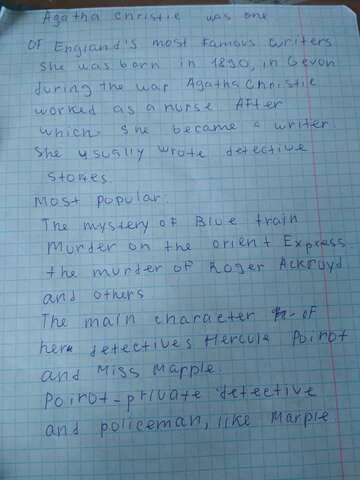 Agatha Christie was one
OF England's most Famous writers
she was born in 1890, in Devon
during the war Agatha Christie
worked as a nurse After
which she became a writer
She usually wrote detective
stories
Most popular:
The mystery of Blue train
Murder on the orient Express
the murder of Roger Ackroyd
and others
The main character of
her detectives Hercule Poirot
and Miss Marple
Poirot-private detective
and policeman, like Marple